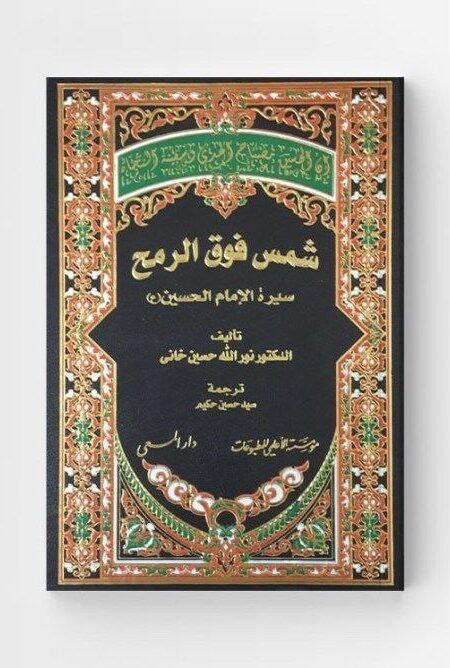 إن الحسين مصباح الهدى وسفينة النجاة
شمس فوق الرمح
سيرة الإمام الحسين (ع)
تأليف
الدكتور نور الله حسين خانى
ترجمة
سيد حسين حكيم
مؤسسة الأعلمي للمطبوعات دار المسعى